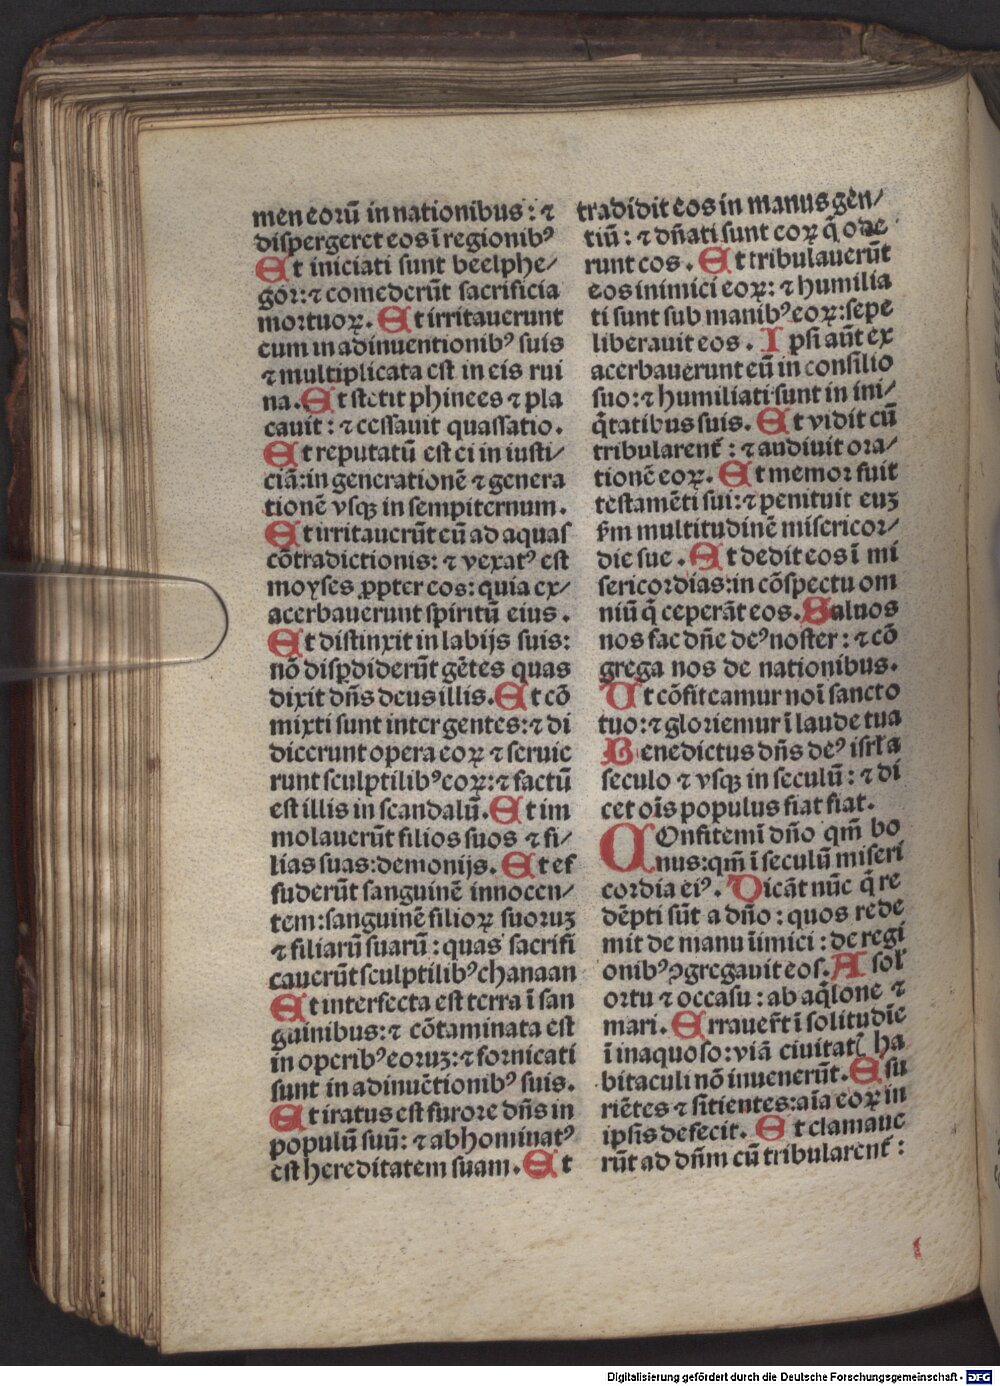 men eorū in nationibus: ⁊
dispergeret eos ī regionibꝰ
Et iniciati sunt beelphe⸗
gor: ⁊ comederūt sacrificia
mortuoꝝ. Et irritauerunt
eum in adinuentionibꝰ suis
⁊ multiplicata est in eis rui
na. Et stetit phinees ⁊ pla
cauit: ⁊ cessauit quassatio.
Et reputatū est ei in iusti⸗
ciā: in generationē ⁊ genera
tionē vsqꝫ in sempiternum.
Et irritauerūt eū ad aquas
cōtradictionis: ⁊ vexatꝰ est
moyses ꝓpter eos: quia ex⸗
acerbauerunt spiritū eius.
Et distinxit in labijs suis:
nō disꝑdiderūt gētes quas
dixit dn̄s deus illis. Et cō
mixti sunt inter gentes: ⁊ di
dicerunt opera eoꝝ ⁊ seruie
runt sculptilibꝰ eoꝝ: ⁊ factū
est illis in scandalū. Et im
molauerūt filios suos ⁊ fi⸗
lias suas: demonijs. Et ef
fuderūt sanguinē innocen⸗
tem: sanguinē filioꝝ suoruꝫ
⁊ filiarū suarū: quas sacrifi
cauerūt sculptilibꝰ chanaan
Et interfecta est terra ī san
guinibus: ⁊ cōtaminata est
in operibꝰ eoruꝫ: ⁊ fornicati
sunt in adinuētionibꝰ suis.
Et iratus est furore dn̄s in
populū suū: ⁊ abhominatꝰ
est hereditatem suam. Et
tradidit eos in manus gen⸗
tiū: ⁊ dn̄ati sunt eoꝝ q̄ ode
runt eos. Et tribulauerūt
eos inimici eoꝝ: ⁊ humilia
ti sunt sub manibꝰ eoꝝ: sepe
liberauit eos. Ipsi aūt ex
acerbauerunt eū in consilio
suo: ⁊ humiliati sunt in ini⸗
q̄tatibus suis. Et vidit cū
tribularent̄: ⁊ audiuit ora⸗
tionē eoꝝ. Et memor fuit
testamēti sui: ⁊ penituit euꝫ
ẜm multitudinē misericor⸗
die sue. Et dedit eos ī mi
sericordias: in cōspectu om
niū q̄ ceperāt eos. Saluos
nos fac dn̄e deꝰ noster: ⁊ cō
grega nos de nationibus.
Ut cōfiteamur noī sancto
tuo: ⁊ gloriemur ī laude tua
Benedictus dn̄s deꝰ isrl̄ a
seculo ⁊ vsqꝫ in seculū: ⁊ di
cet oīs populus fiat fiat.
COnfitemī dn̄o qm̄ bo
nus: qm̄ ī seculū miseri
cordia eiꝰ. Dicāt nūc q̄ re
dēpti sūt a dn̄o: quos rede
mit de manu īimici: de regi
onibꝰ ꝯgregauit eos. A sol̄
ortu ⁊ occasu: ab aq̄lone ⁊
mari. Errauer̄t ī solitudīe
ī inaquoso: viā ciuitatꝭ ha
bitaculi nō inuenerūt. Esu
riētes ⁊ sitientes: aīa eoꝝ in
ipsis defecit. Et clamaue
rūt ad dn̄m cū tribularent̄:
Digitalisierung gefördert durch die Deutsche Forschungsgemeinschaft - DFG